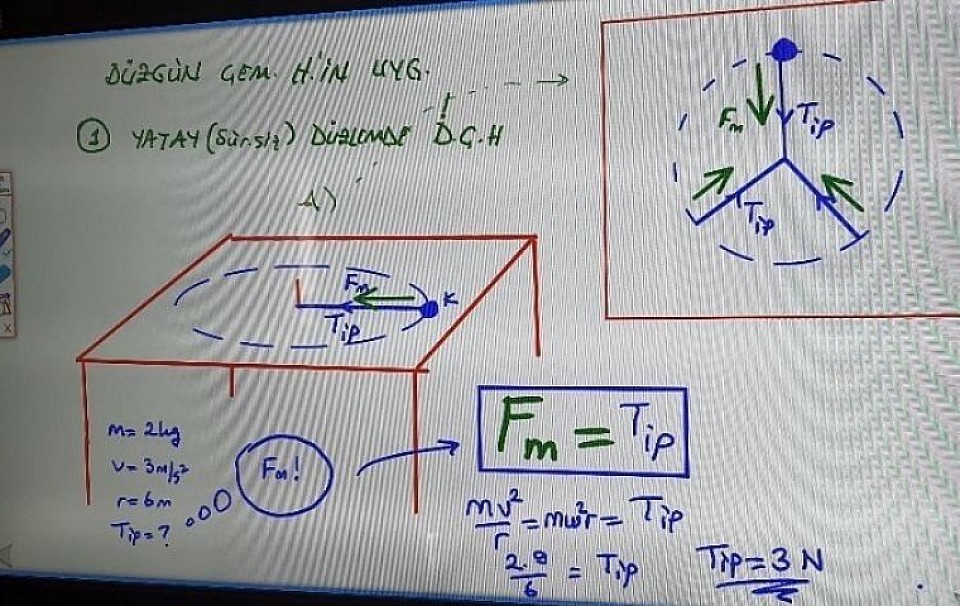 DÜZGÜN ÇEM. H.'İN UYG.
1 YATAY (Sür.siz) DÜZLEMDE D.Ç.H
A)
Fm
Tip
K
Fm
Tip
Tip
m= 2kg
v= 3m/s²
r= 6m
Tip = ?
Fm!
Fm = Tip
mv²/r = mω²r = Tip
2.9/6 = Tip
Tip = 3 N